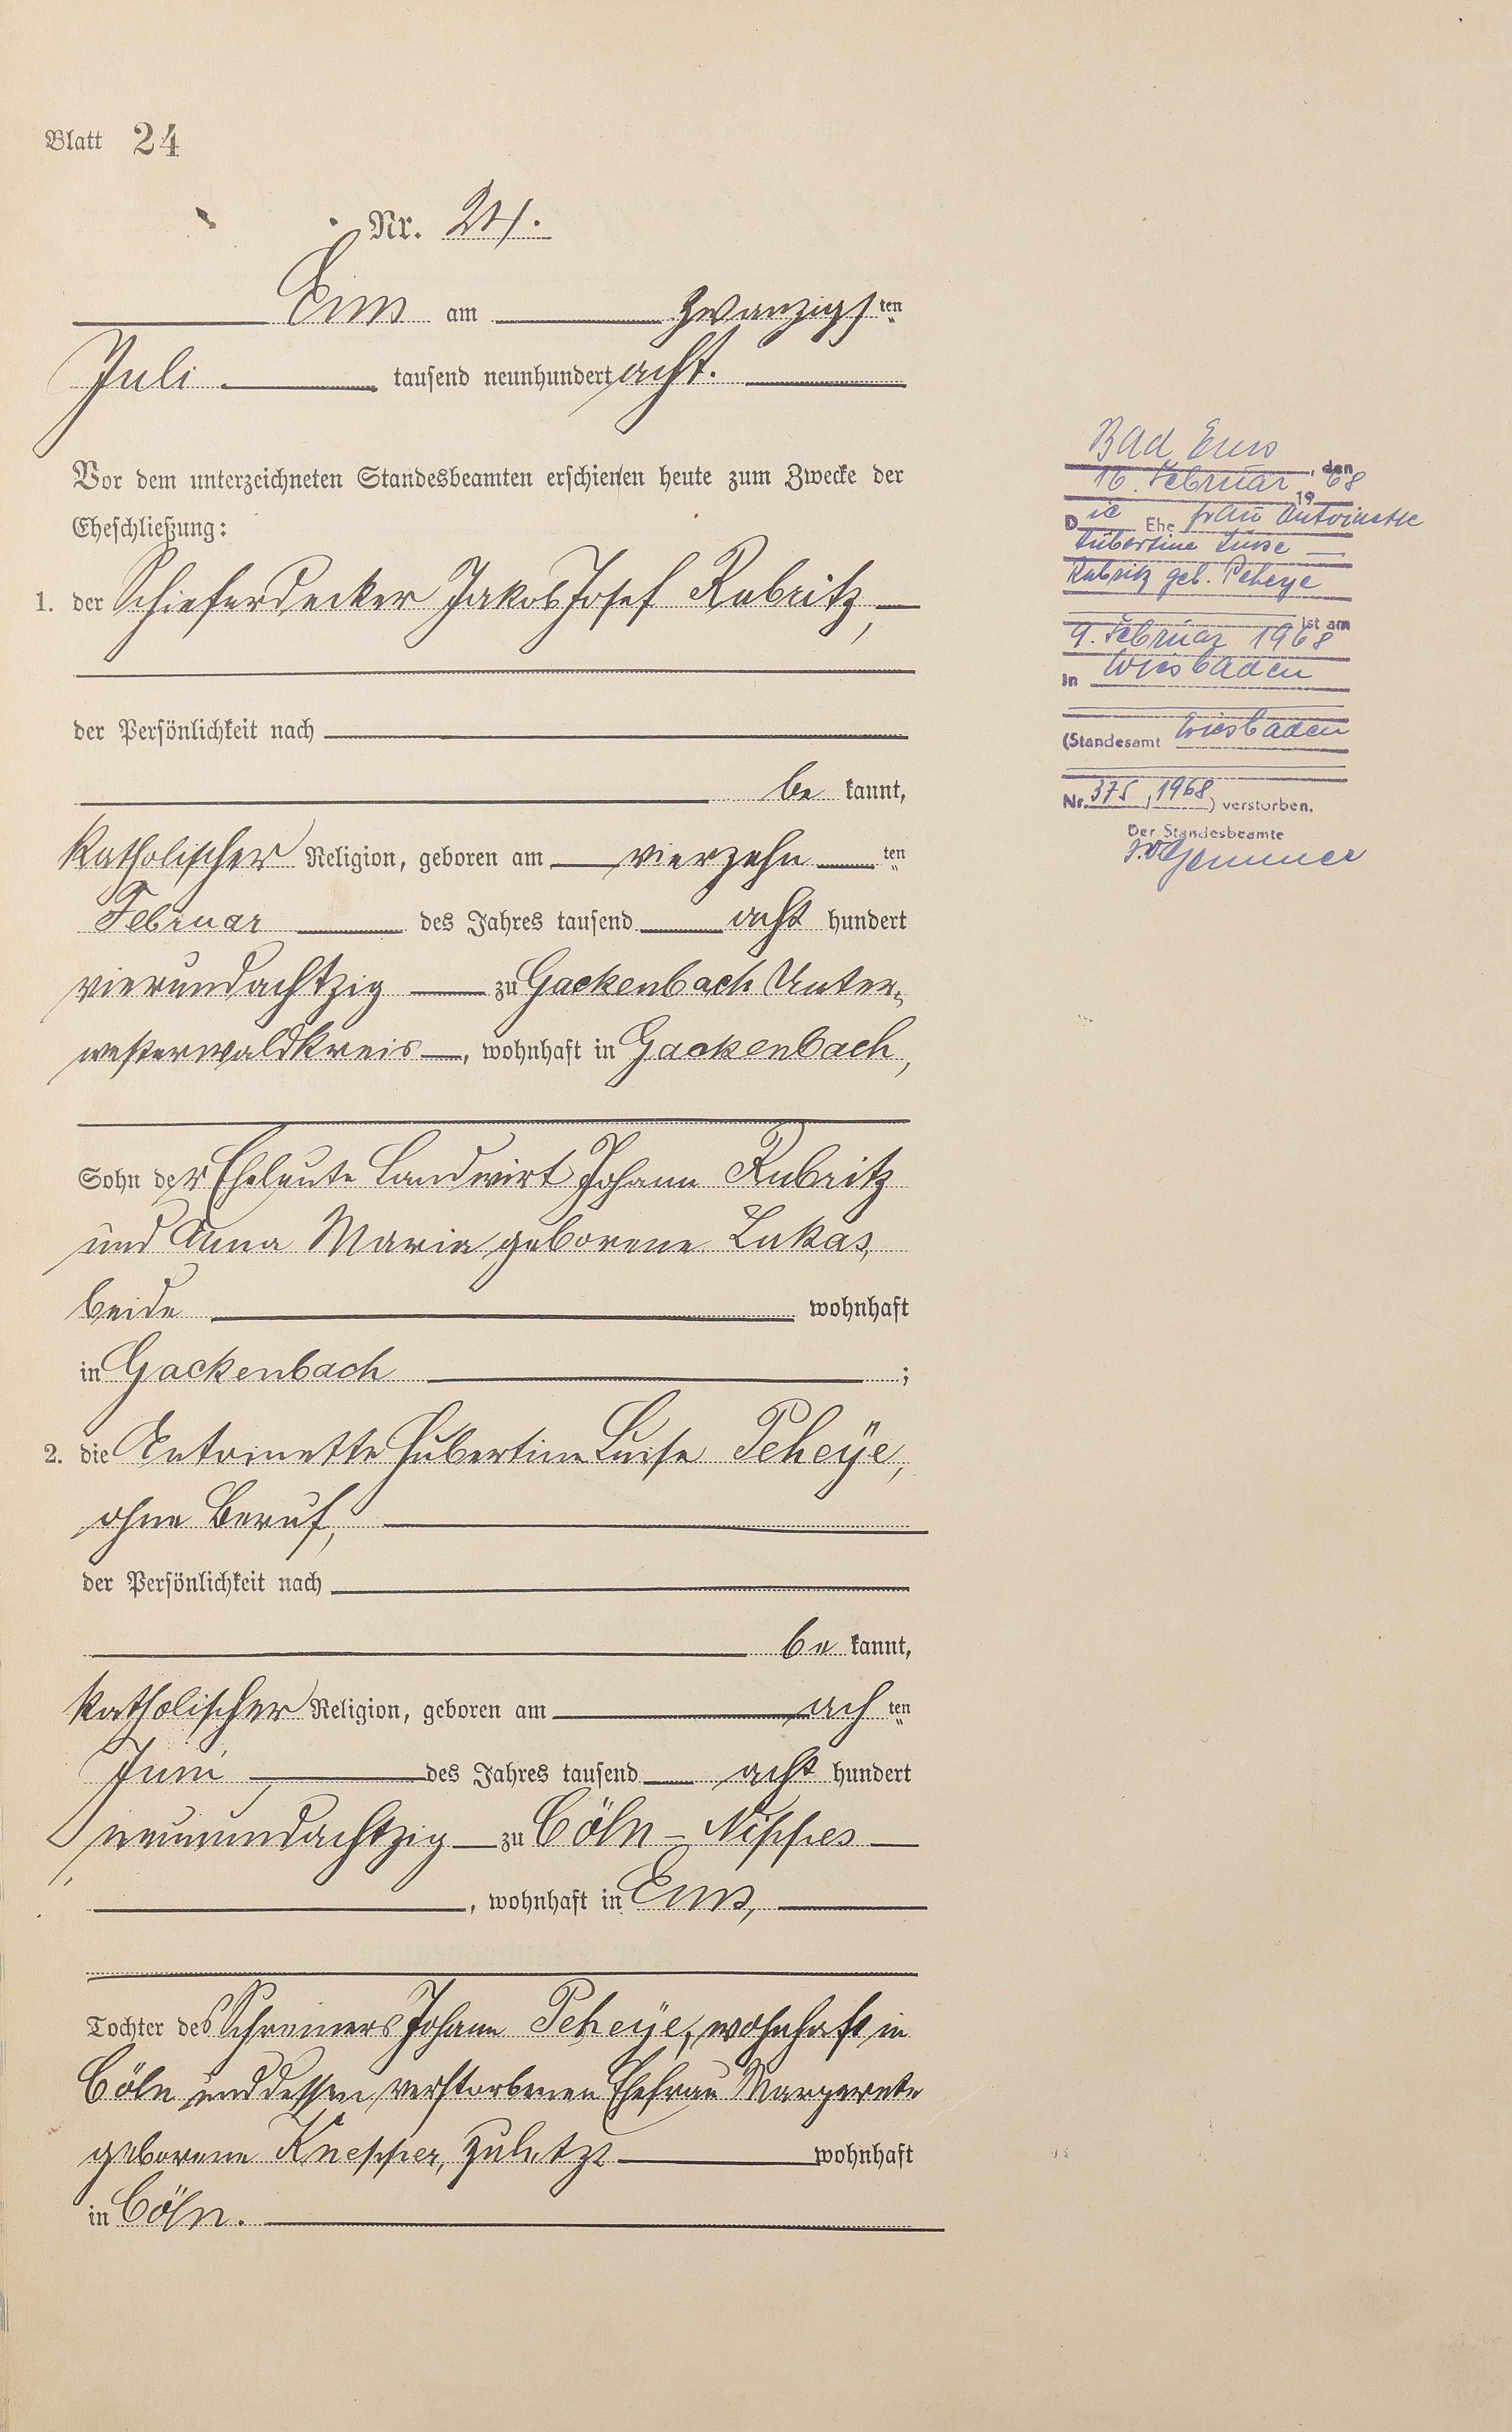 Blatt 24
Nr. 24.
Ems am zwanzigsten
Juli tausend neunhundert acht.
Vor dem unterzeichneten Standesbeamten erschienen heute zum Zwecke der
Eheschließung:
1. der Schieferdecker Jakob Josef Rubritz,
der Persönlichkeit nach
be kannt,
katholischer Religion, geboren am vierzehn ten
Februar des Jahres tausend acht hundert
vierundachtzig zu Gackenbach Unter-
westerwaldkreis, wohnhaft in Gackenbach,
Sohn der Eheleute Landwirt Johann Rubritz
und Anna Maria geborene Lukas,
beide wohnhaft
in Gackenbach ;
2. die Antoinette Hubertine Luise Peheÿe,
ohne Beruf,
der Persönlichkeit nach
be kannt,
katholischer Religion, geboren am ach ten
Juni des Jahres tausend acht hundert
neunundachtzig zu Cöln-Nippes
, wohnhaft in Ems,
Tochter des Schreiners Johann Peheÿe, wohnhaft in
Cöln und dessen verstorbenen Ehefrau Margarete
geborene Knepper, zuletzt wohnhaft
in Cöln.
Bad Ems, den
16. Februar 1968
Die Ehefrau Antoinette
Hubertine Luise
Rubritz geb. Peheye
ist am
9. Februar 1968
in Wiesbaden
(Standesamt Wiesbaden
Nr. 375, 1968) verstorben.
Der Standesbeamte